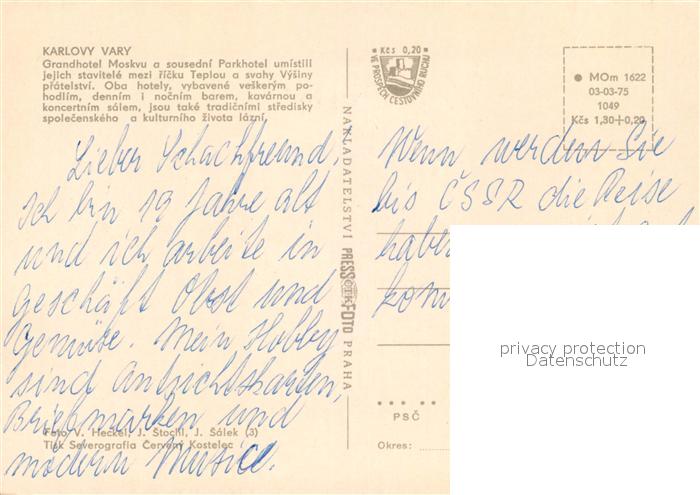 KARLOVY VARY
Grandhotel Moskvu a sousední Parkhotel umístili
jejich stavitelé mezi říčku Teplou a svahy Výšiny
přátelství. Oba hotely, vybavené veškerým po-
hodlím, denním i nočním barem, kavárnou a
koncertním sálem, jsou také tradičními středisky
společenského a kulturního života lázní.
Lieber Schachfreund,
Ich bin 19 Jahre alt
und ich arbeite in
geschäft Obst und
Gemüse. Mein Hobby
sind Antichtskarten,
Briefmarken und
modern Musice.
Foto V. Heckel, J. Štochl, J. Šálek (3)
Tisk Severografia Červený Kostelec
NAKLADATELSTVÍ PRESSFOTO PRAHA
ČTK
Kčs 0,20
VE PROSPĚCH CESTOVNÍHO RUCHU
MOm 1622
03-03-75
1049
Kčs 1,30+0,20
Wenn werden Sie
bis ČSSR die Reise
haben
kom
privacy protection
Datenschutz
PSČ
Okres: